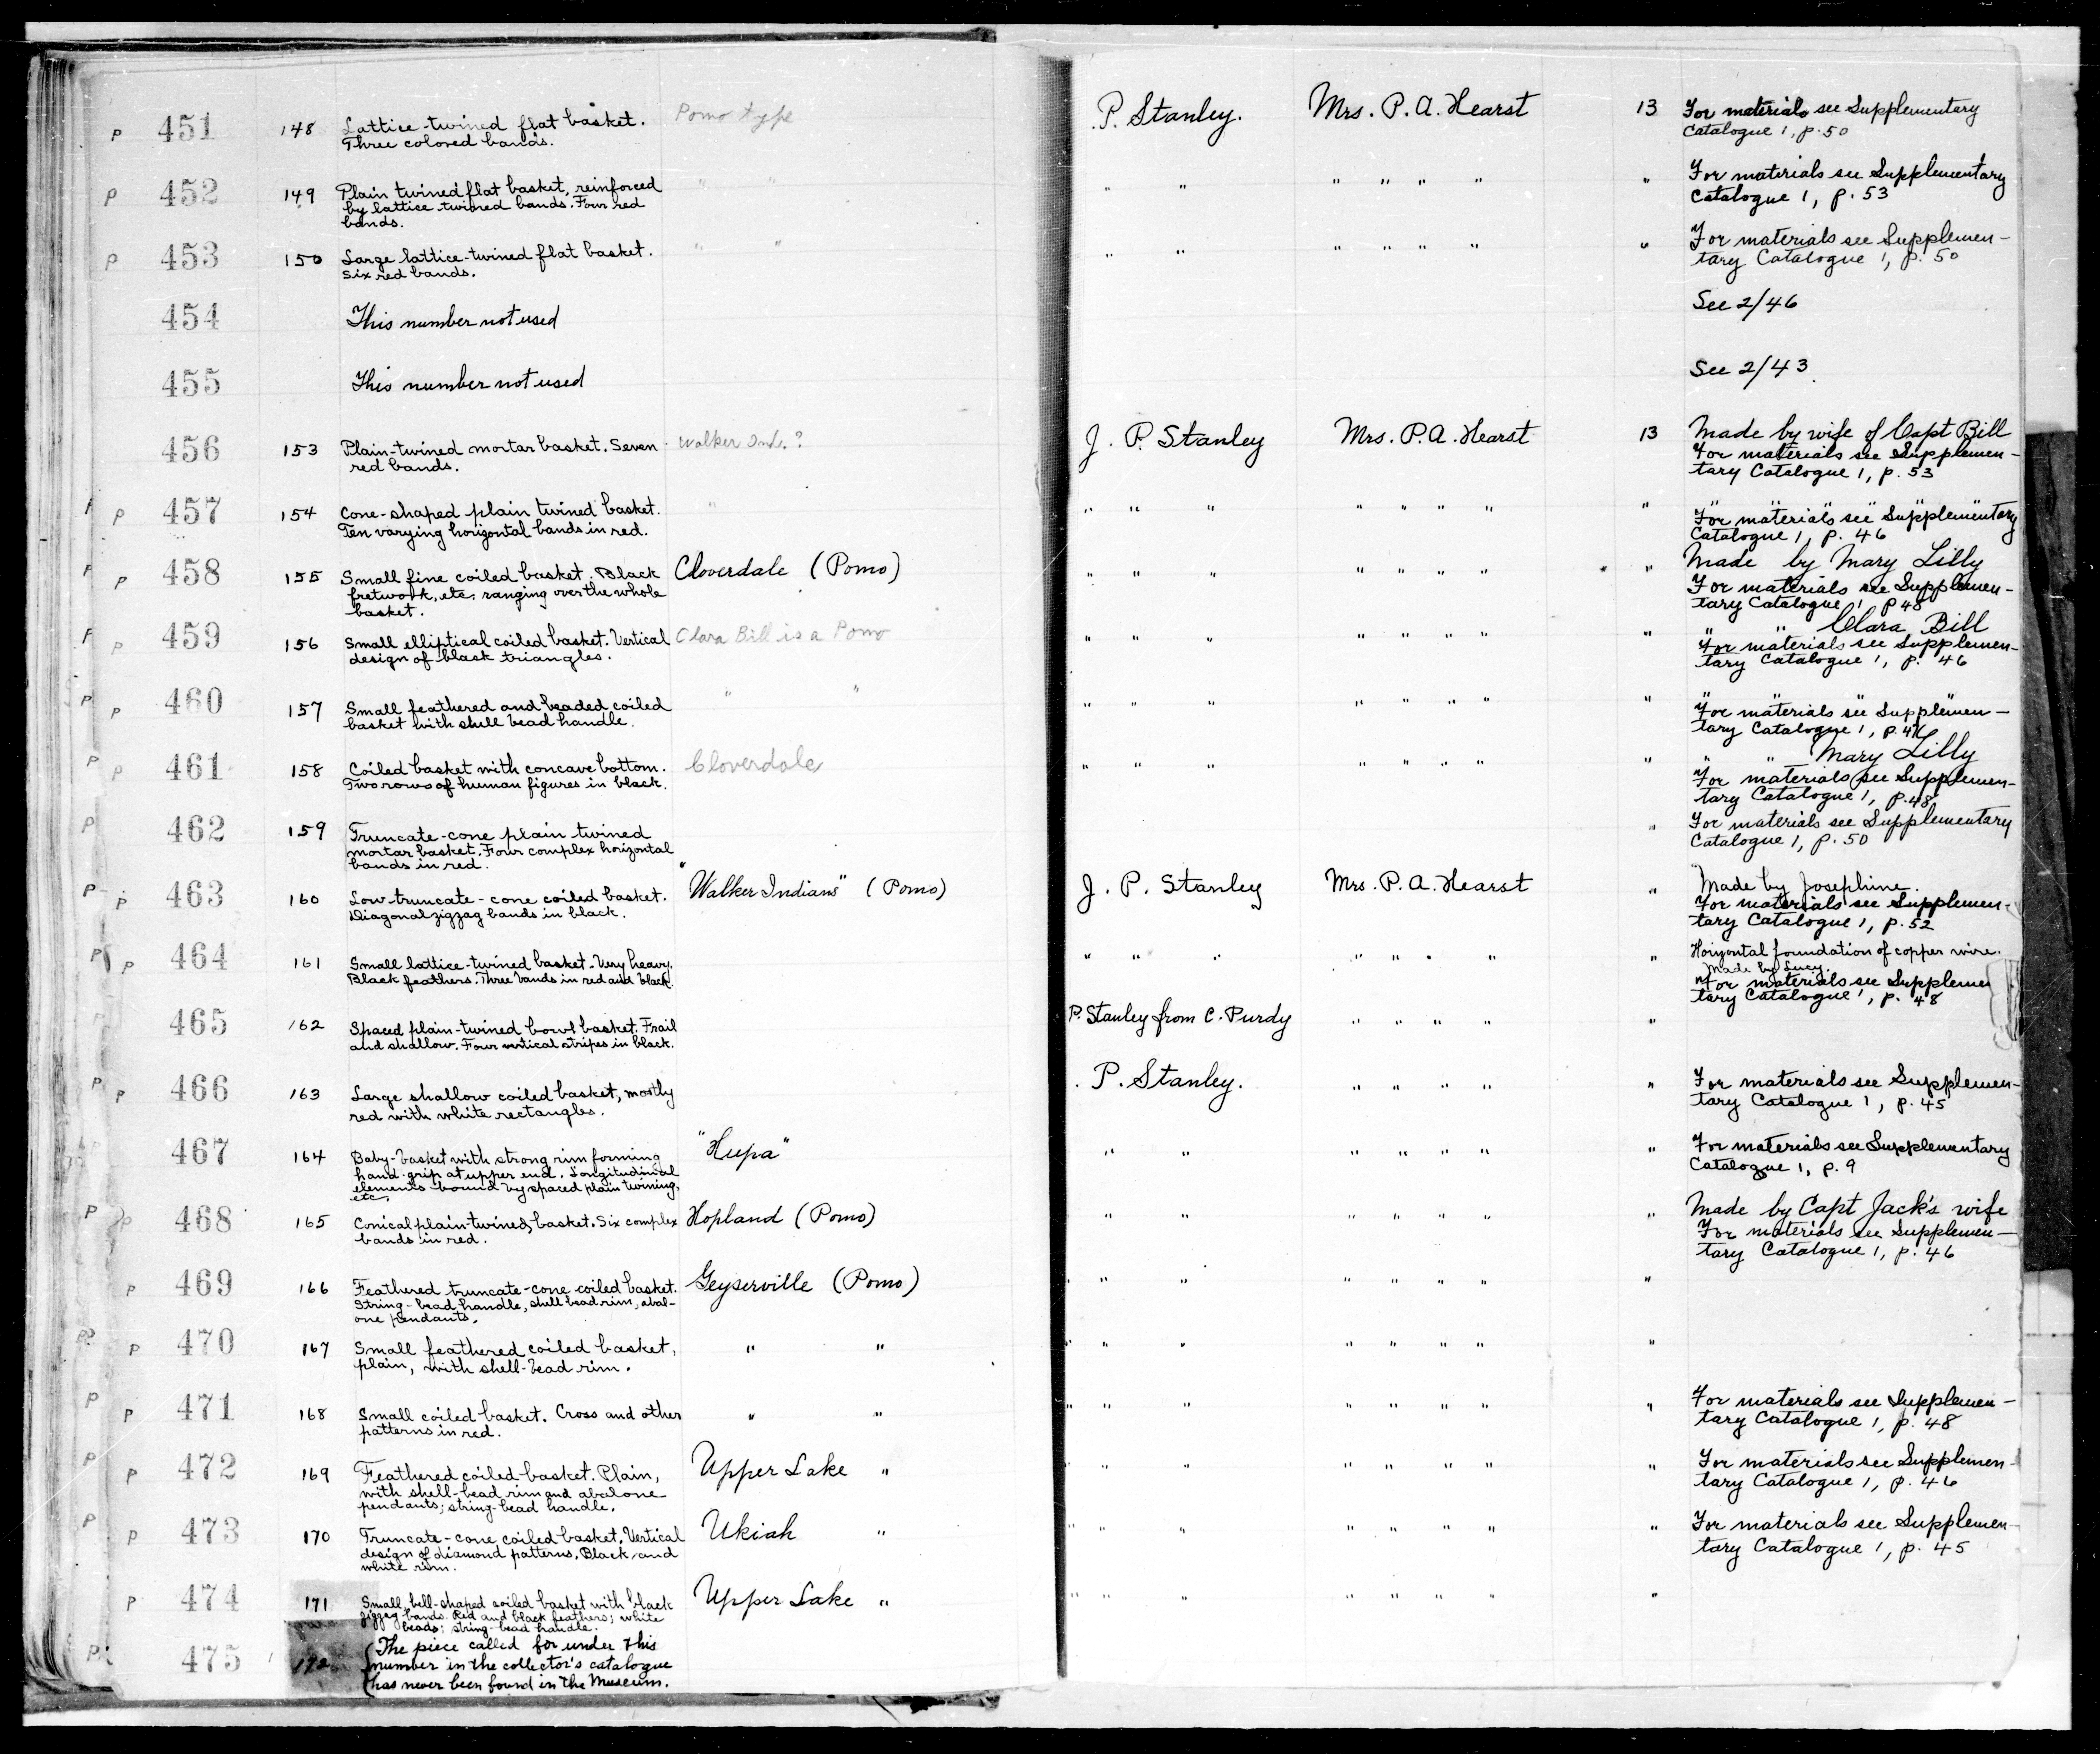 P 451 148 Lattice-twined flat basket. Pomo type P. Stanley. Mrs. P. A. Hearst 13 For materials see Supplementary
Three colored bands. Catalogue 1, p. 50
P 452 149 Plain twined flat basket, reinforced " " " " " " " " " For materials see Supplementary
by lattice twined bands. Four red Catalogue 1, p. 53
bands.
P 453 150 Large lattice-twined flat basket. " " " " " " " " " For materials see Supplemen-
Six red bands. tary Catalogue 1, p. 50
454 This number not used See 2/46
455 This number not used See 2/43
456 153 Plain-twined mortar basket. Seven Walker Ind. ? J. P. Stanley Mrs. P. A. Hearst 13 Made by wife of Capt Bill
red bands. For materials see Supplemen-
tary Catalogue 1, p. 53
P P 457 154 Cone-shaped plain twined basket. " " " " " " " " " " " " "
Ten varying horizontal bands in red. For materials see Supplementary
Catalogue 1, p. 46
P P 458 155 Small fine coiled basket. Black Cloverdale (Pomo) " " " " " " " " Made by Mary Lilly
fretwork, etc. ranging over the whole For materials see Supplemen-
basket. tary Catalogue 1 p 48
P P 459 156 Small elliptical coiled basket. Vertical Clara Bill is a Pomo " " " " " " " " " " Clara Bill
design of black triangles. For materials see Supplemen-
tary Catalogue 1, p. 46
P P 460 157 Small feathered and beaded coiled " " " " " " " " " " " " " "
basket with shell bead handle. For materials see Supplemen-
tary Catalogue 1, p.
P P 461 158 Coiled basket with concave bottom. Cloverdale " " " " " " " " " " Mary Lilly
Two rows of human figures in black. For materials see Supplemen-
tary Catalogue 1, p. 48
P 462 159 Truncate-cone plain twined " For materials see Supplementary
mortar basket. Four complex horizontal Catalogue 1, p. 50
bands in red.
P P 463 160 Low truncate-cone coiled basket. "Walker Indians" (Pomo) J. P. Stanley Mrs. P. A. Hearst " Made by Josephine.
Diagonal zigzag bands in black. For materials see Supplemen-
tary Catalogue 1, p. 52
P P 464 161 Small lattice-twined basket. Very heavy. " " " " " " " " Horizontal foundation of copper wire.
Black feathers. Three bands in red and black. Made by Lucy.
For materials see Supplemen
tary Catalogue 1, p. 48
P 465 162 Spaced plain-twined bowl basket. Frail P. Stanley from C. Purdy " " " " "
and shallow. Four vertical stripes in black.
P P 466 163 Large shallow coiled basket, mostly P. Stanley. " " " " " For materials see Supplemen-
red with white rectangles. tary Catalogue 1, p. 45
467 164 Baby-basket with strong rim forming "Hupa" " " " " " " " For materials see Supplementary
hand-grip at upper end. Longitudinal Catalogue 1, p. 9
elements bound by spaced plain twining,
etc.
P P 468 165 Conical plain-twined basket. Six complex Hopland (Pomo) " " " " " " " Made by Capt Jack's wife
bands in red. For materials see Supplemen-
tary Catalogue 1, p. 46
P 469 166 Feathered truncate-cone coiled basket. Geyserville (Pomo) " " " " " " "
String-bead handle, shell bead rim, abal-
one pendants.
P 470 167 Small feathered coiled basket, " " " " " " " " "
plain, with shell-bead rim.
P P 471 168 Small coiled basket. Cross and other " " " " " " " " " For materials see Supplemen-
patterns in red. tary Catalogue 1, p. 48
P P 472 169 Feathered coiled basket. Plain, Upper Lake " " " " " " " " For materials see Supplemen-
with shell-bead rim and abalone tary Catalogue 1, p. 46
pendants; string-bead handle.
P P 473 170 Truncate-cone coiled basket. Vertical Ukiah " " " " " " " " For materials see Supplemen-
design of diamond patterns. Black and tary Catalogue 1, p. 45
white rim.
P 474 171 Small, bell-shaped coiled basket with black Upper Lake " " " " " " " "
zigzag bands. Red and black feathers; white
beads; string-bead handle.
P 475 172 (The piece called for under this
number in the collector's catalogue
has never been found in the Museum.